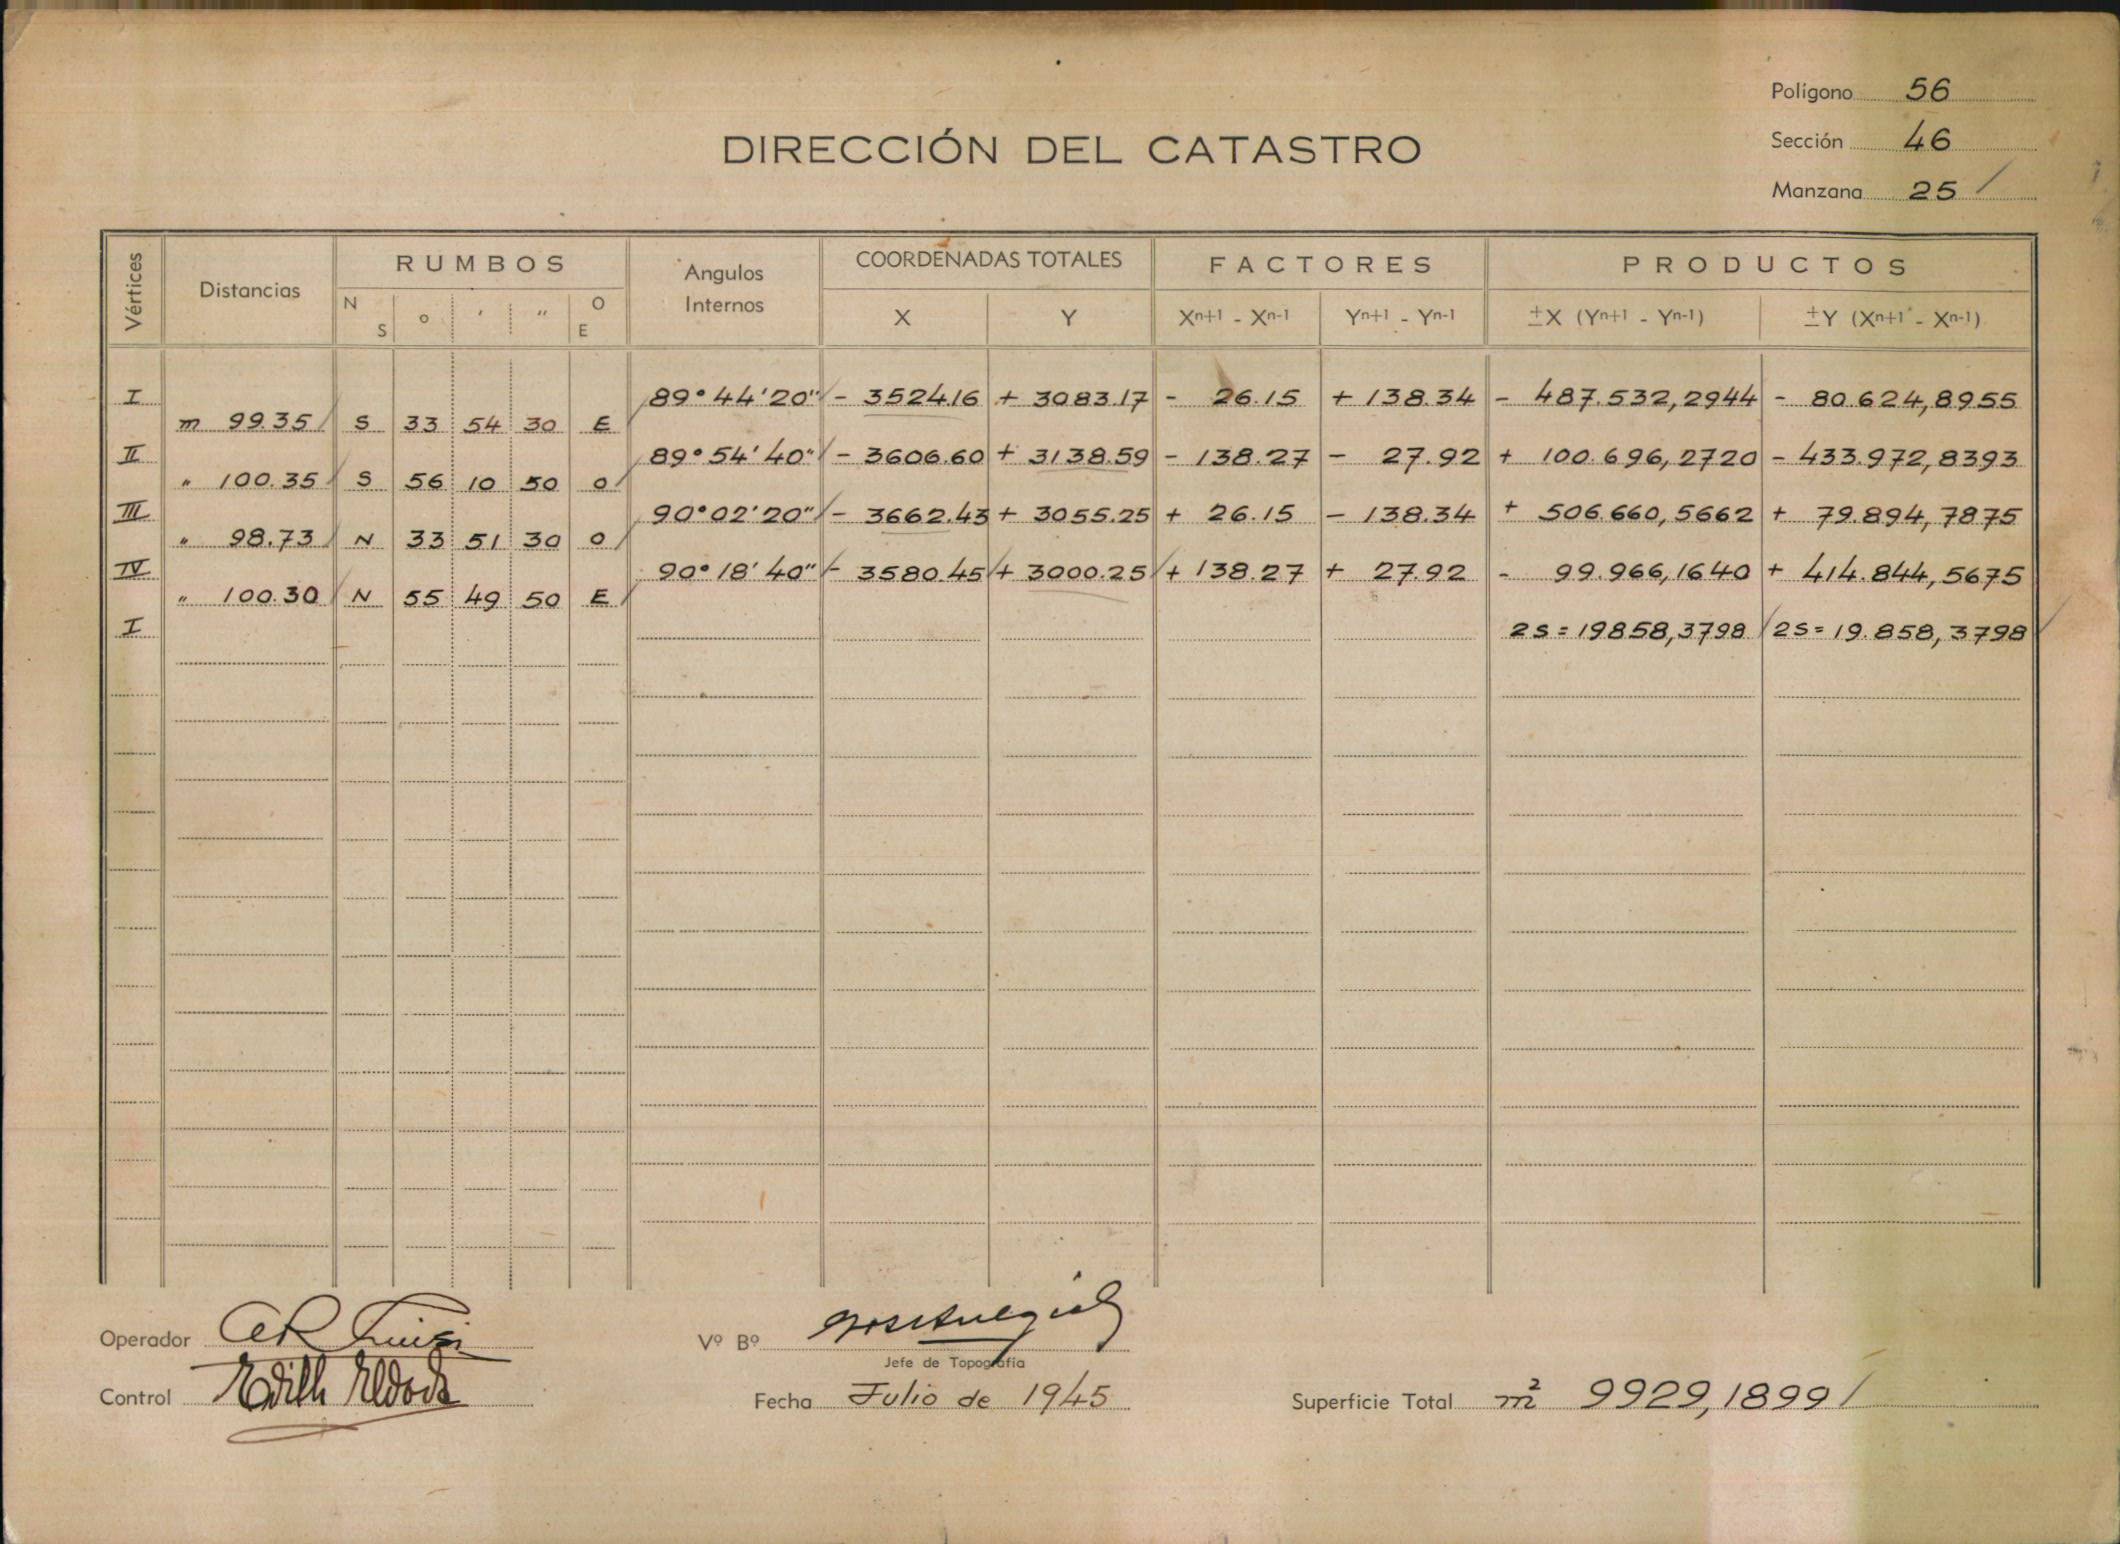 Polígono 56
DIRECCIÓN DEL CATASTRO
Sección 46
Manzana 25 /
Vértices Distancias RUMBOS Angulos Internos COORDENADAS TOTALES FACTORES PRODUCTOS
N S o ' " O E X Y Xⁿ⁺¹ - Xⁿ⁻¹ Yⁿ⁺¹ - Yⁿ⁻¹ ±X (Yⁿ⁺¹ - Yⁿ⁻¹) ±Y (Xⁿ⁺¹ - Xⁿ⁻¹)
I 89°44'20" - 3524.16 + 3083.17 - 26.15 + 138.34 - 487.532,2944 - 80.624,8955
m 99.35 S 33 54 30 E
II 89°54'40" - 3606.60 + 3138.59 - 138.27 - 27.92 + 100.696,2720 - 433.972,8393
" 100.35 S 56 10 50 O
III 90°02'20" - 3662.43 + 3055.25 + 26.15 - 138.34 + 506.660,5662 + 79.894,7875
" 98.73 N 33 51 30 O
IV 90°18'40" - 3580.45 + 3000.25 + 138.27 + 27.92 - 99.966,1640 + 414.844,5675
" 100.30 N 55 49 50 E
I 2S=19858,3798 2S=19.858,3798
Operador
Vº Bº
Jefe de Topografía
Control Edith
Fecha Julio de 1945
Superficie Total m² 9929,1899 /